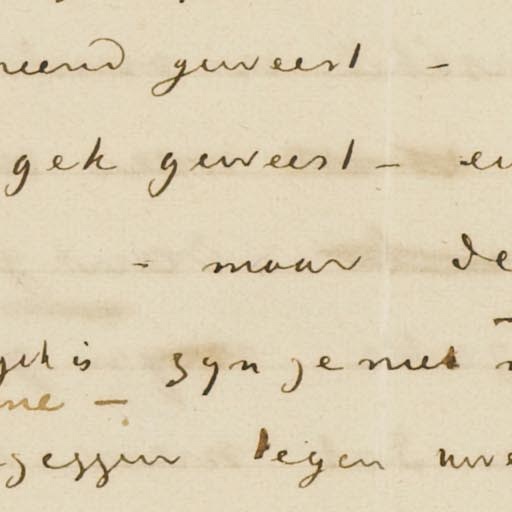 geweest -
gek geweest - en
- maar de
gek is zyn ze niet
ne -
zeggen tegen